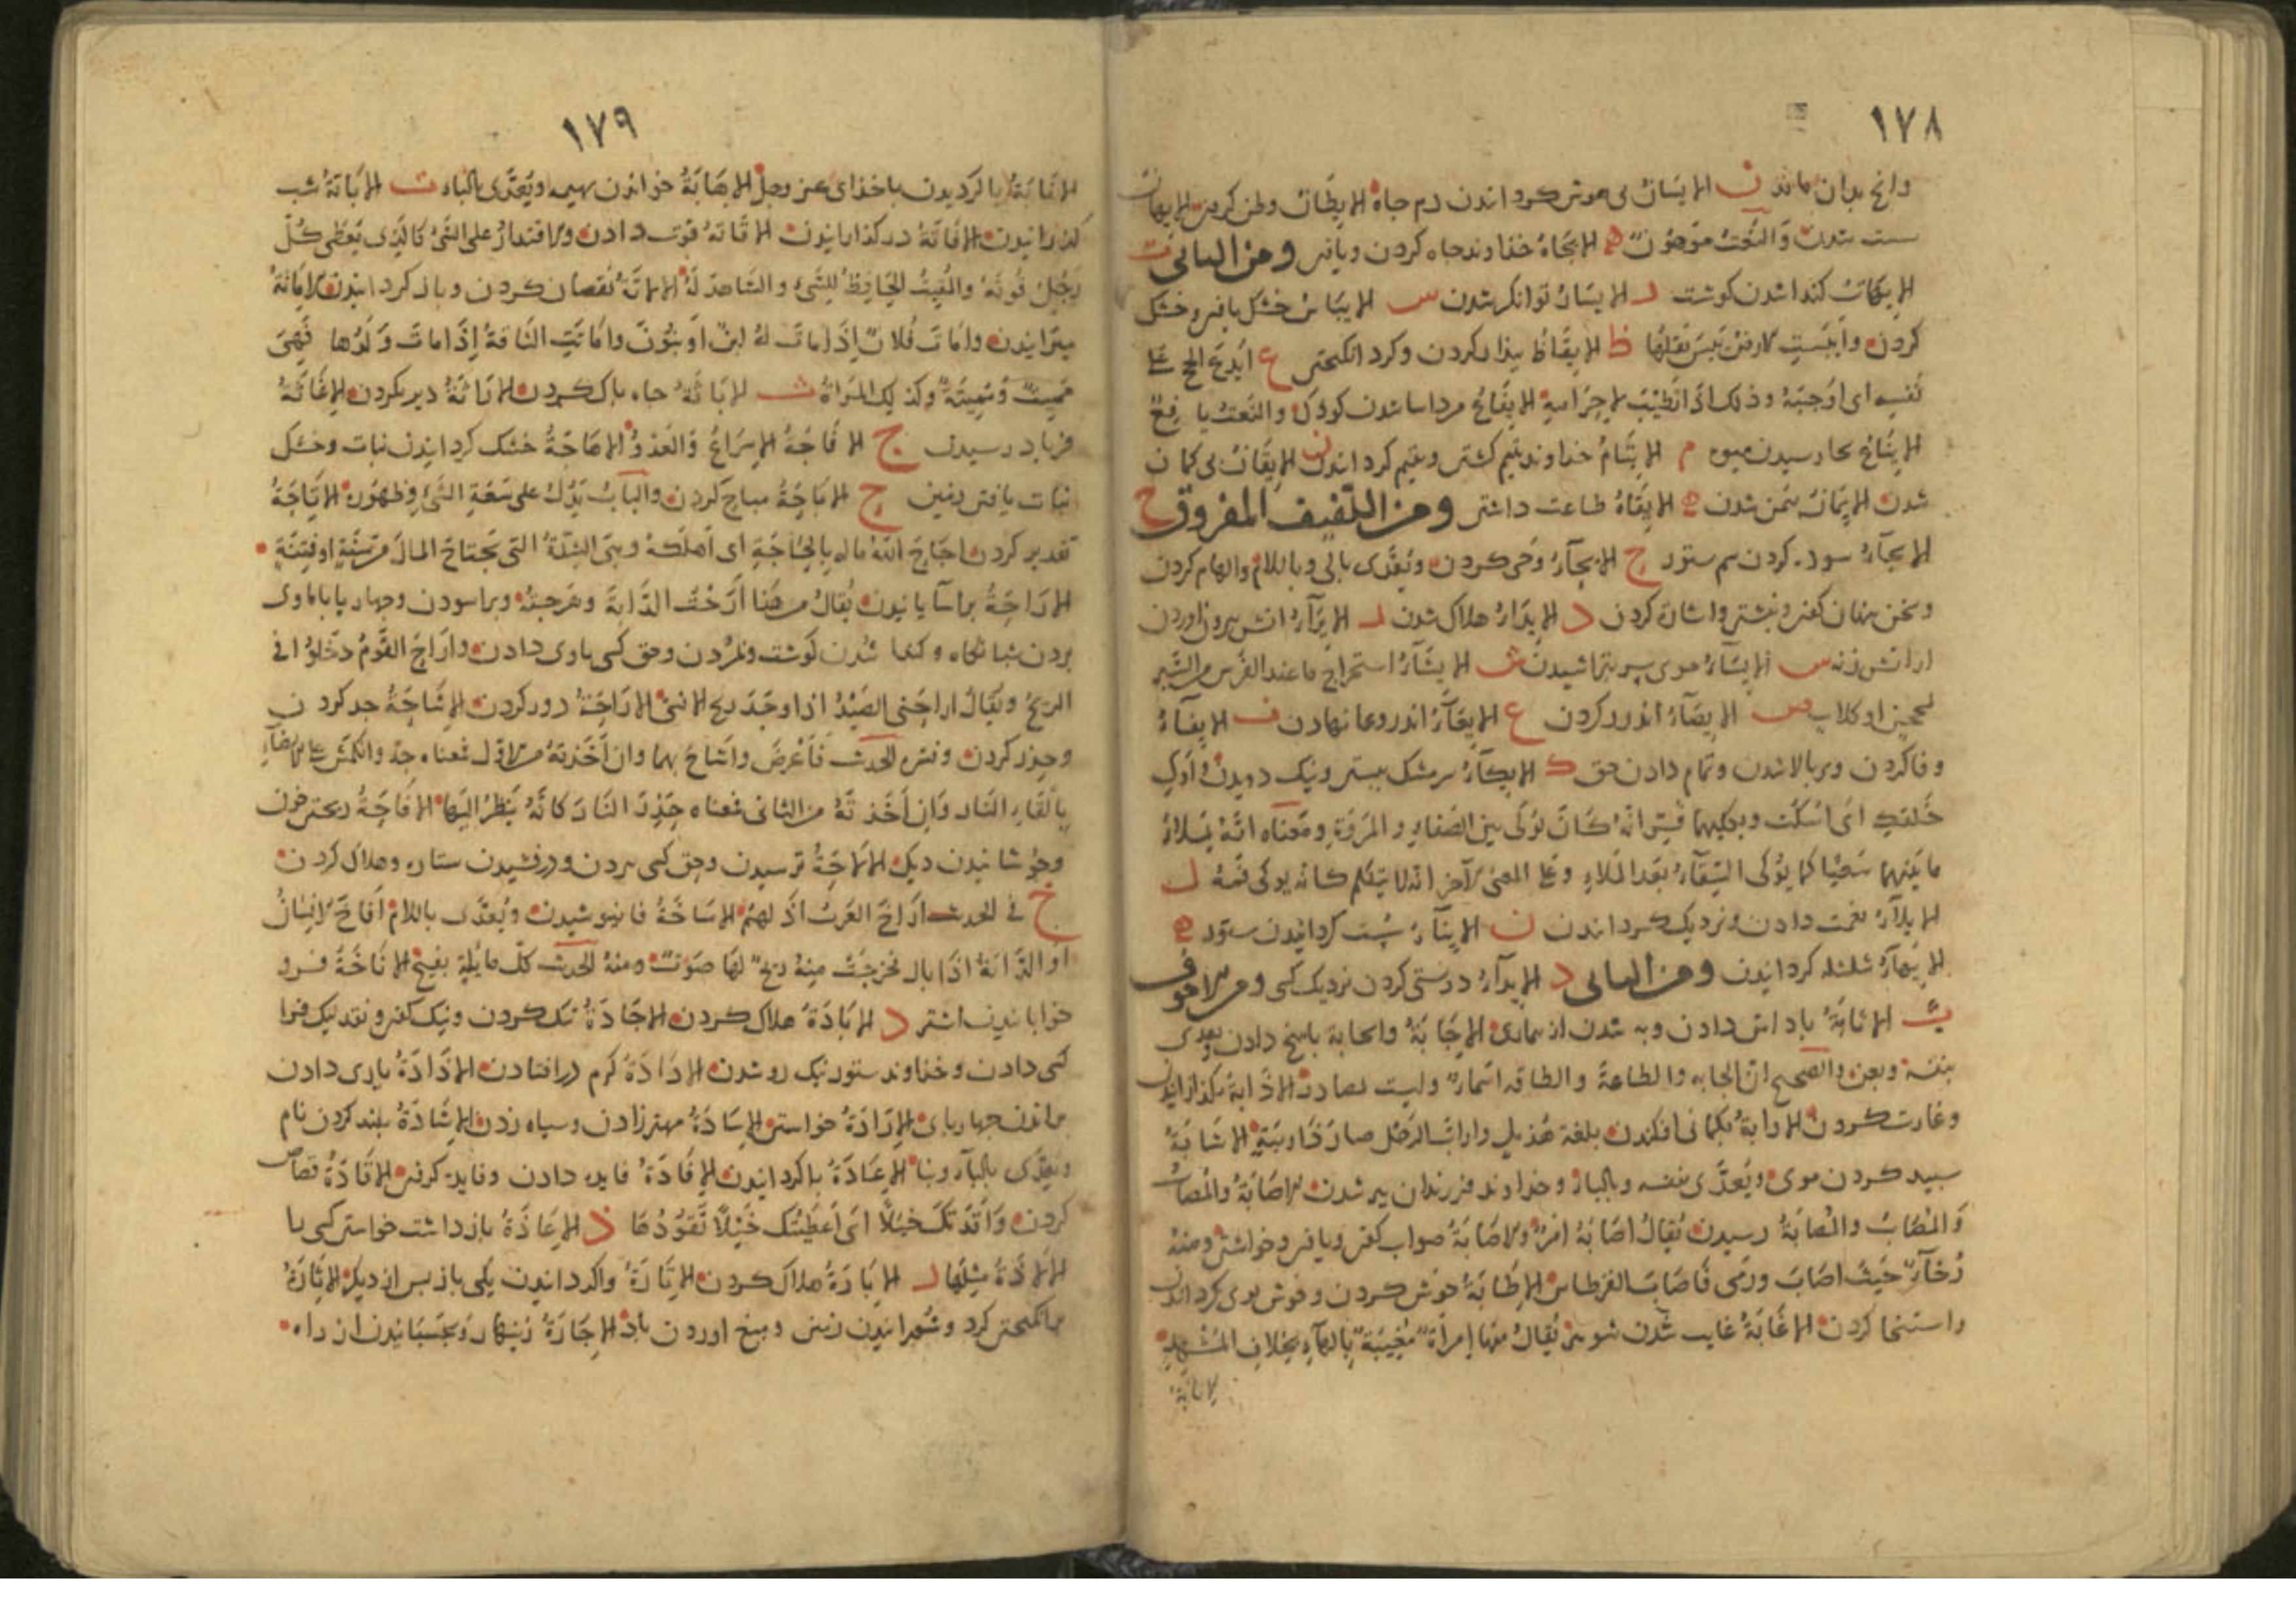 ١٧٨
وانج بدان ماند ن الایسان بی هوش کردانیدن دم جاه الایطان وطن کرفتن الایهان
سست شدن والنعت موهون ه الایجاه خداوند جاه کردن ویافتن ومن الیائی ت
الایهات کنده شدن کوشت ر الایسار توانکر شدن س الایباس خشک یافتن وخشک
کردن وایبست الارض یبس بقلها ظ الایقاظ بیدار کردن وکرد انکیختن ع ایدع الحج علی
نفسه ای اوجبه وذلک اذا تطیب لاحرامه الایفاع مرداسا شدن کودک والنعت یافع
الایناع بجا رسیدن میوه م الایتام خداوند یتیم کشتن ویتیم کردانیدن ن الایقان بی کمان
شدن الایمان بیمن شدن ه الایقاه طاعت داشتن ومن اللفیف المفروق ح
الایجآء سوده کردن سم ستور ح الایحآء وحی کردن ویعدی بالی وباللام والهام کردن
وسخن پنهان کفتن ونبشتن واشارت کردن د الایدآء هلاک شدن ر الایرآء اتش بیرون اوردن
از اتش زنه س الایسآء موی سر بتراشیدن ش الایشآء استخراج ما عند الفرس من السیر
بمحجن او کلاب ص الایصآء اندرز کردن ع الایعآء اندر وعا نهادن ف الایفآء
وفا کردن وبر بالا شدن وتمام دادن حق ک الایکآء سر مشک ببستن ونیک دویدن واوک
حلقک ای اسکت وبکلیهما فسر انه کان یوکی بین الصفا والمروة ومعناه انه یملاء
ما بینهما سعیا کما یوکی السقآء بعد الملاء وعلی المعنی الآخر انه لا یتکلم کانه یوکی فمه ل
الایلآء نعمت دادن ونزدیک کردانیدن ن الاینآء سست کردانیدن ستور ه
الایهآء شلشله کردانیدن ومن الیائی د الایدآء درستی کردن نزدیک کسی ومن الاجوف
ب الاثابة پاداش دادن وبه شدن از بیماری الاجابة والجابة پاسخ دادن ویعدی
بنفسه وبعن والصحیح ان الجابه والطاعة والطاقه اسمآء ولیست بمصادر الاذابة بکدازانیدن
وغارت کردن الارابة بکمانی افکندن بلغة هذیل واراب الرجل صار ذا ریبة الاشابة
سپید کردن موی ویعدی بنفسه وبالبآء وخداوند فرزندان پیر شدن الاصابة والمصاب
والمصاب والمصابة رسیدن یقال اصابه امر والاصابة صواب کفتن ویافتن وخواستن ومنه
رخآء حیث اصاب ورمی فاصاب القرطاس الاطابة خوش کردن وخوش بوی کردانیدن
واستنجا کردن الاغابة غایب شدن شوی یقال منها إمرأة مغیبة بالهآء بخلاف المشهد
الانابة
١٧٩
الانابة باز کردیدن باخذای عز وجل الاهابة خواندن بهیمه ویعدی بالباء ت الاباتة شب
کذرانیدن الافاتة در کذرانیدن الاقاتة قوت دادن والاقتدار علی الشئ کالذی یعطی کل
رجل قوته والمقیت الحافظ للشئ والشاهد له الالاتة نقصان کردن وباز کردانیدن الاماتة
میرانیدن وامات فلان إذا مات له ابن او بنون واماتت الناقة إذا مات ولدها فهی
ممیت وممیتة وکذلک المرأة ث الاباثة جاه پاک کردن الاراثة دیر بکردن الاغاثة
فریاد رسیدن ج الافاجة الاسراع والعدو الاهاجة خشک کردانیدن نبات وخشک
نبات یافتن زمین ح الاباحة مباح کردن والباب یدل علی سعة الشئ وظهوره الاتاحة
تقدیر کردن اجاح الله ماله بالجائحة ای اهلکه وهی الشدة التی تجتاح المال من سنة او فتنة
الاراحة براسآیانیدن یقال من هنا ارحت الدابة وفرحته وبراسودن وجهارپا باماوی
بردن شبانکاه وکندا شدن کوشت ومردن وحق کسی باوی دادن واراح القوم دخلوا فی
الریح ویقال اراحنی الصید اذا وجد ریح الانسی الازاحة دور کردن الاشاحة جد کردن
وحذر کردن وفی الحدث فاعرض واشاح بهما وان اخذته من الاول فمعناه جد وانکمش علی الایصآء
باتقاء النار وان اخذته من الثانی فمعناه حذر النار کانه ینظر الیها الافاحة ریختن خون
وجوشانیدن دیک الالاحة ترسیدن وحق کسی بردن ودرفشیدن ستاره وهلاک کردن
خ فی الحدیث اراخ العرب اذلهم الاساخة فا نیوشیدن ویعدی باللام افاخ الانسان
او الدابة اذا بال فخرجت منه ریح لها صوت ومنه الحدیث کل مایلة تفیخ الاناخة فرو
خوابانیدن اشتر د الابادة هلاک کردن الاجادة نیک کردن ونیک کفتن ونقد نیک فرا
کسی دادن وخداوند ستور نیک رو شدن الادادة کرم در افتادن الاذادة یاری دادن
براندن جهارپای الارادة خواستن الاسادة مهتر زادن وسیاه زدن الاشادة بلند کردن نام
ویعدی بالبآء وبنا الاعادة باز کردانیدن الافادة فایده دادن وفایده کرفتن الاقادة قصاص
کردن واقدتک خیلا ای اعطیتک خیلا تقودها ذ الاعاذة باز داشت خواستن کسی با
الالاذة مثلها ر الابارة هلاک کردن الاتارة واکردانیدن یکی باز پس از دیکر الاثارة
برانکیختن کرد وشورانیدن زمین ومیغ اوردن باد الاجارة زینهار وبچسبانیدن از راه